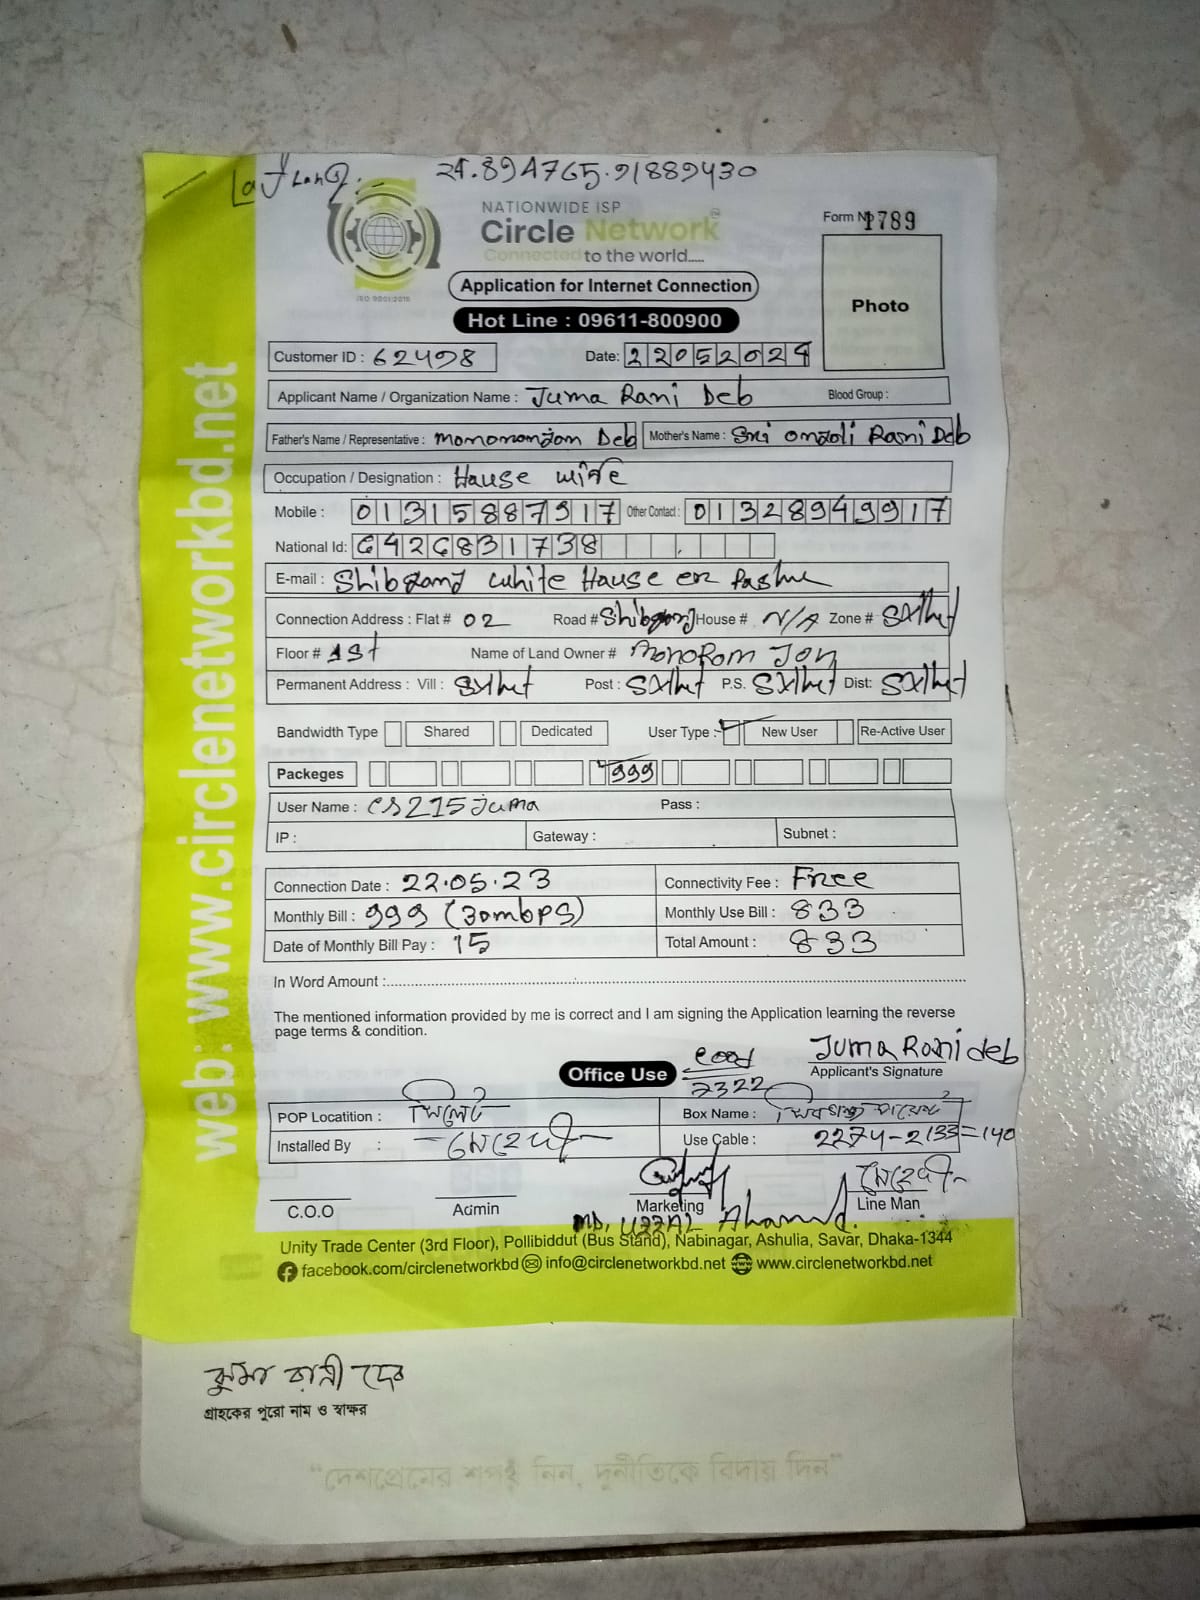 24.894765.91889430
NATIONWIDE ISP
Circle Network
Connected to the world.....
ISO 9001:2015
Form No 1789
Photo
Application for Internet Connection
Hot Line : 09611-800900
Customer ID : 62498 Date: 22052024
Applicant Name / Organization Name : Juma Rani Deb Blood Group :
Father's Name / Representative : Deb Mother's Name : Sri Rani Deb
Occupation / Designation : Hause wife
Mobile : 01315887917 Other Contact : 01328949917
National Id: 6426831738
E-mail : white Hause
Connection Address : Flat # 02 Road # Shibgonj House # N/A Zone # Sylhet
Floor # 1st Name of Land Owner # MonoRom Jon
Permanent Address : Vill : Sylhet Post : Sylhet P.S. Sylhet Dist: Sylhet
Bandwidth Type Shared Dedicated User Type :- New User Re-Active User
Packeges 999
User Name : cs215juma Pass :
IP : Gateway : Subnet :
Connection Date : 22.05.23 Connectivity Fee : Free
Monthly Bill : 999 (30mbps) Monthly Use Bill : 833
Date of Monthly Bill Pay : 15 Total Amount : 833
In Word Amount :
The mentioned information provided by me is correct and I am signing the Application learning the reverse
page terms & condition.
Juma Rani deb
Office Use Applicant's Signature
7322
POP Locatition : সিলেট Box Name :
Installed By : মেহেদী Use Cable : 2274-2133=140
C.O.O Admin Marketing মেহেদী Line Man
MD, UZZAL Ahamed.
Unity Trade Center (3rd Floor), Pollibiddut (Bus Stand), Nabinagar, Ashulia, Savar, Dhaka-1344
facebook.com/circlenetworkbd info@circlenetworkbd.net www.circlenetworkbd.net
web: www.circlenetworkbd.net
ঝুমা রানী দেব
গ্রাহকের পুরো নাম ও স্বাক্ষর
“দেশপ্রেমের শপথ নিন, দুর্নীতিকে বিদায় দিন”